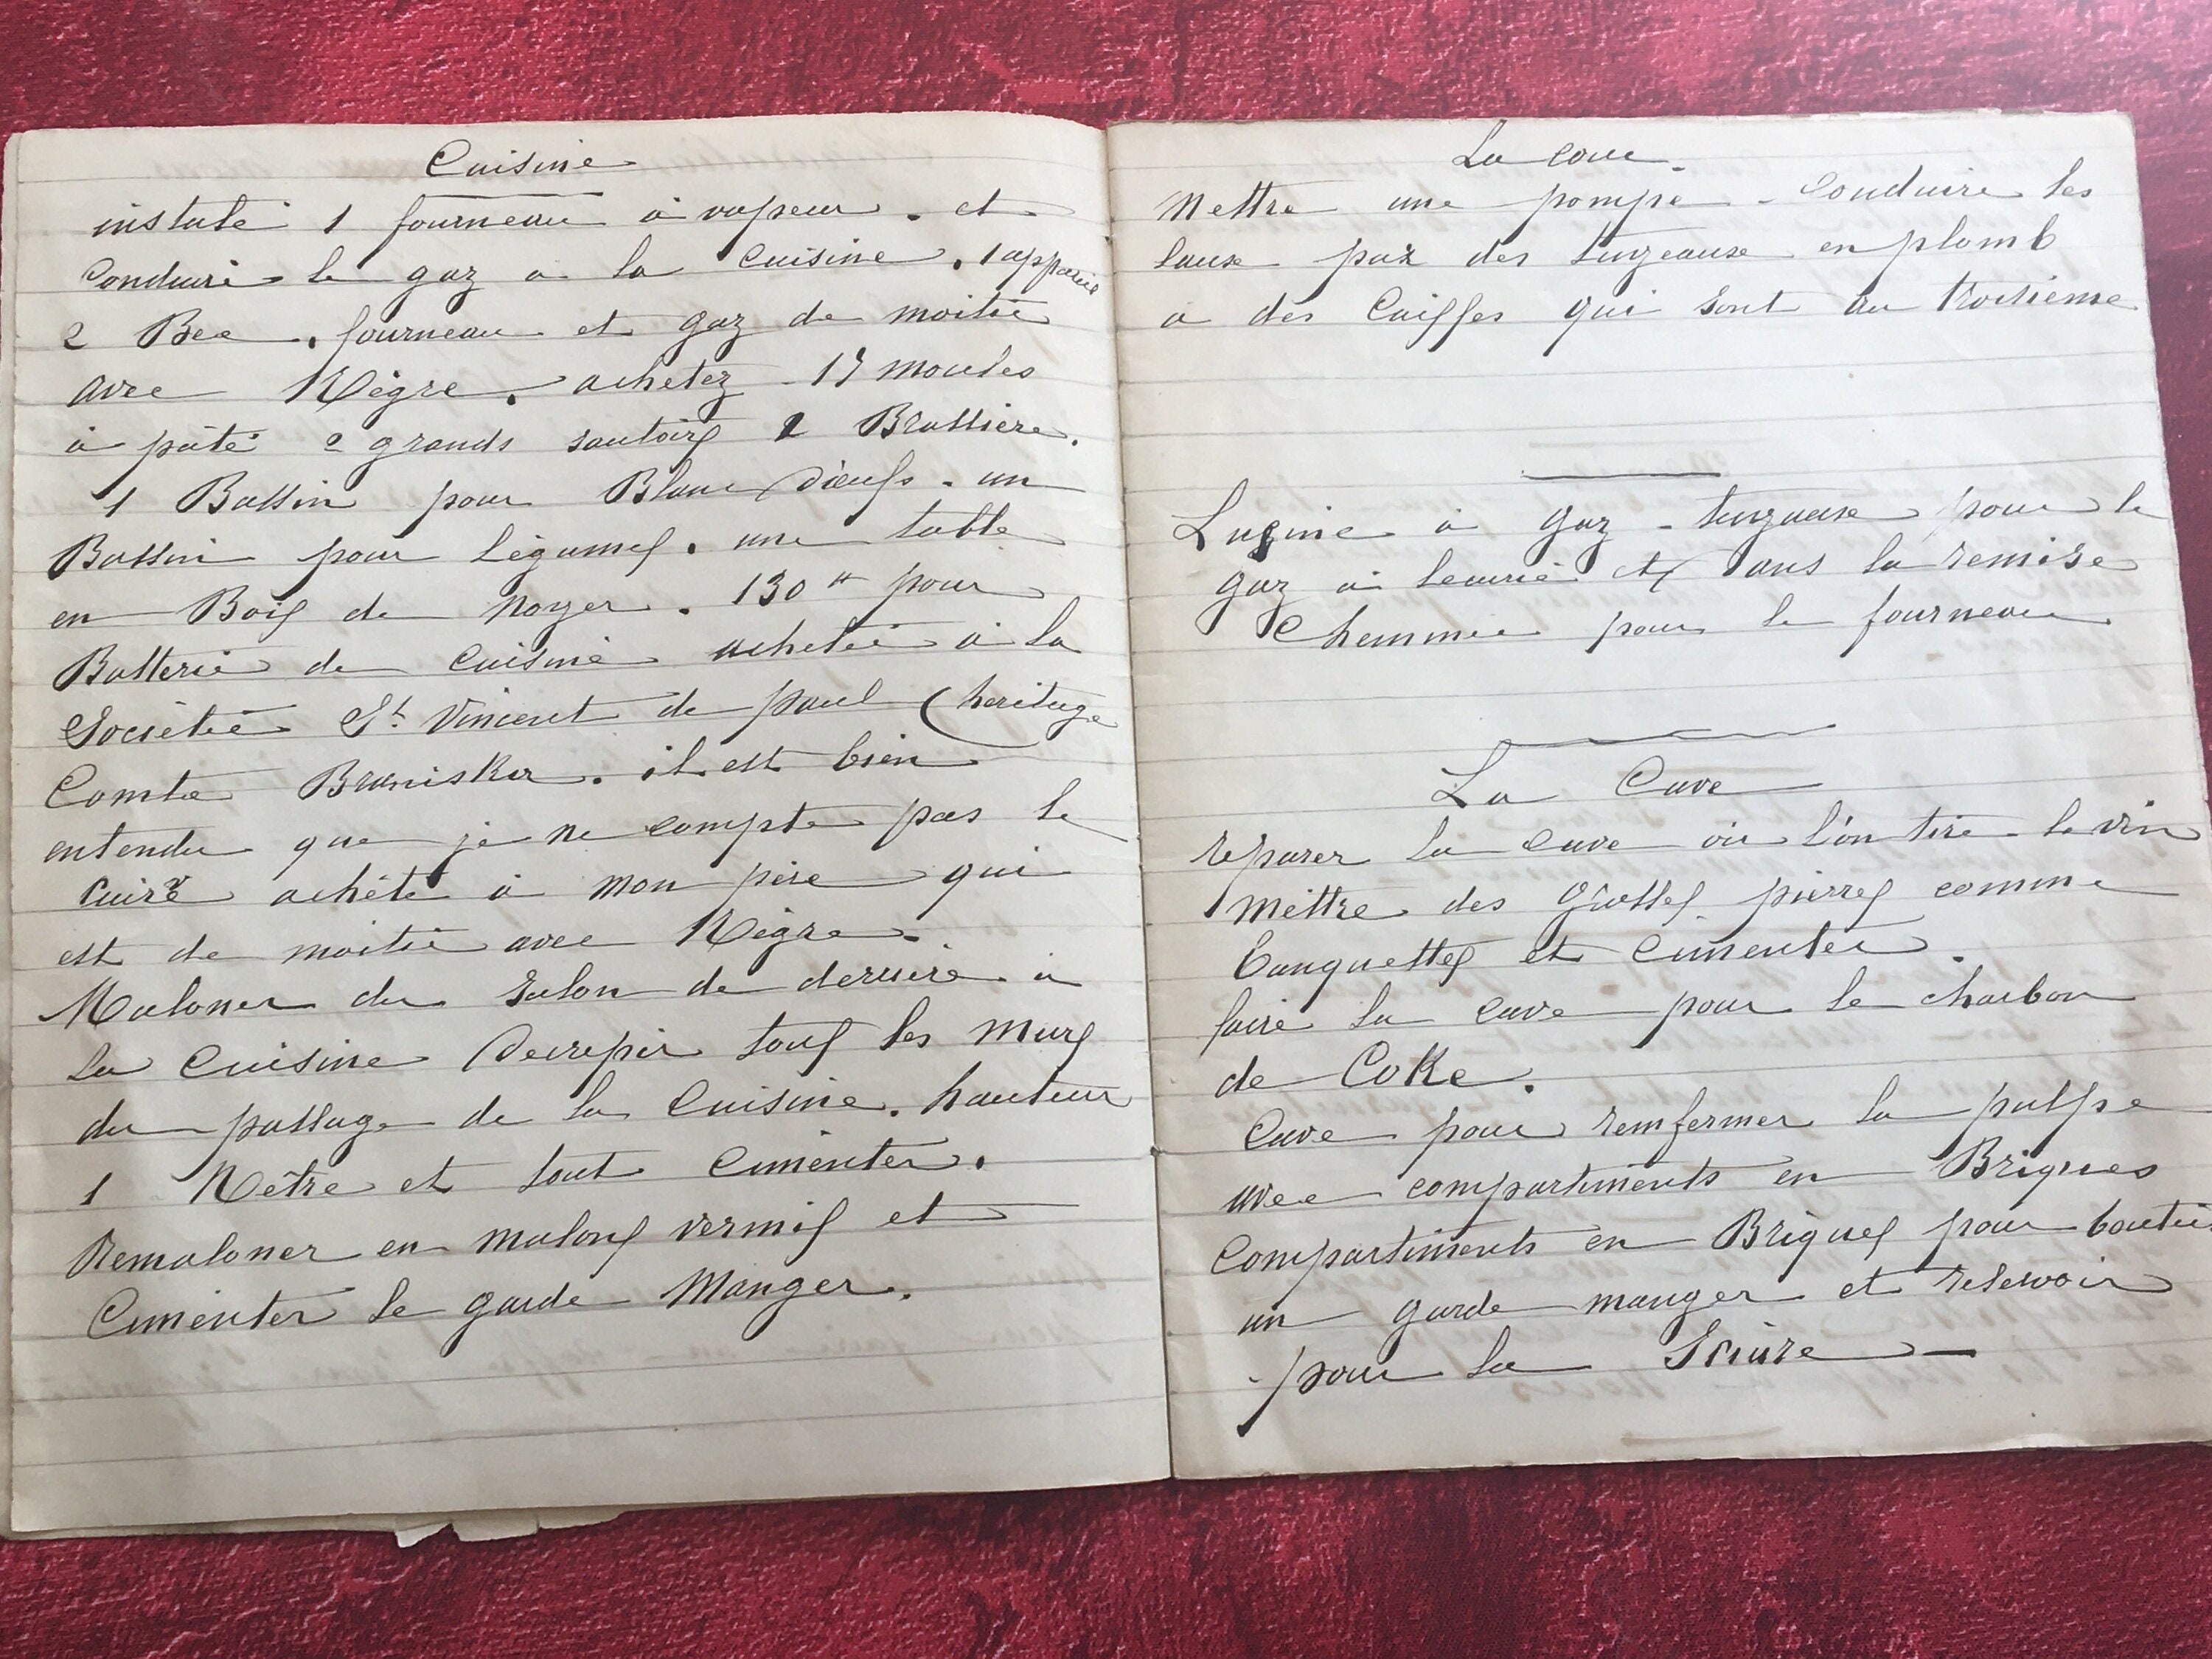 Cuisine
instalé 1 fourneau à vapeur. et
Conduire le gaz a la Cuisine. 1 appareil
2 Bec. fourneau et gaz de moitié
avec Nègre. achetez 17 moules
à pâté 2 grands sautoirs 2 Brassière.
1 Bassin pour Blanc d'œufs. un
Bassin pour Légumes. une table
en Bois de Noyer. 130 " pour
Batterie de Cuisine achetée à la
Société St Vincent de paul (heritage
Comte Braniska. il est bien
entendu que je ne compte pas le
Cuivre achété à mon père qui
est de moitié avec Nègre.
Maloner du Salon de derrière à
la Cuisine Decrepir tous les Murs
du passage de la Cuisine. hauteur
1 Mètre et tout Cimenter.
Remaloner en malons vernis et
Cimenter le garde Manger.
La Cour
Mettre une pompe - Conduire les
Eaux par des tuyeaux en plomb
a des Caisses qui sont au troisième
Lusine à gaz - tuyaux pour le
gaz à lecurie et dans la remise
Cheminée pour le fourneau
La Cave
réparer la Cave où l'on tire le vin
mettre des Grosses pierres comme
banquettes et Cimenter.
faire la Cave pour le charbon
de Coke.
Cave pour remfermer la paille
avec compartiments en Briques
Compartiments en Briques pour
un garde manger et reservoir
pour la Sciure